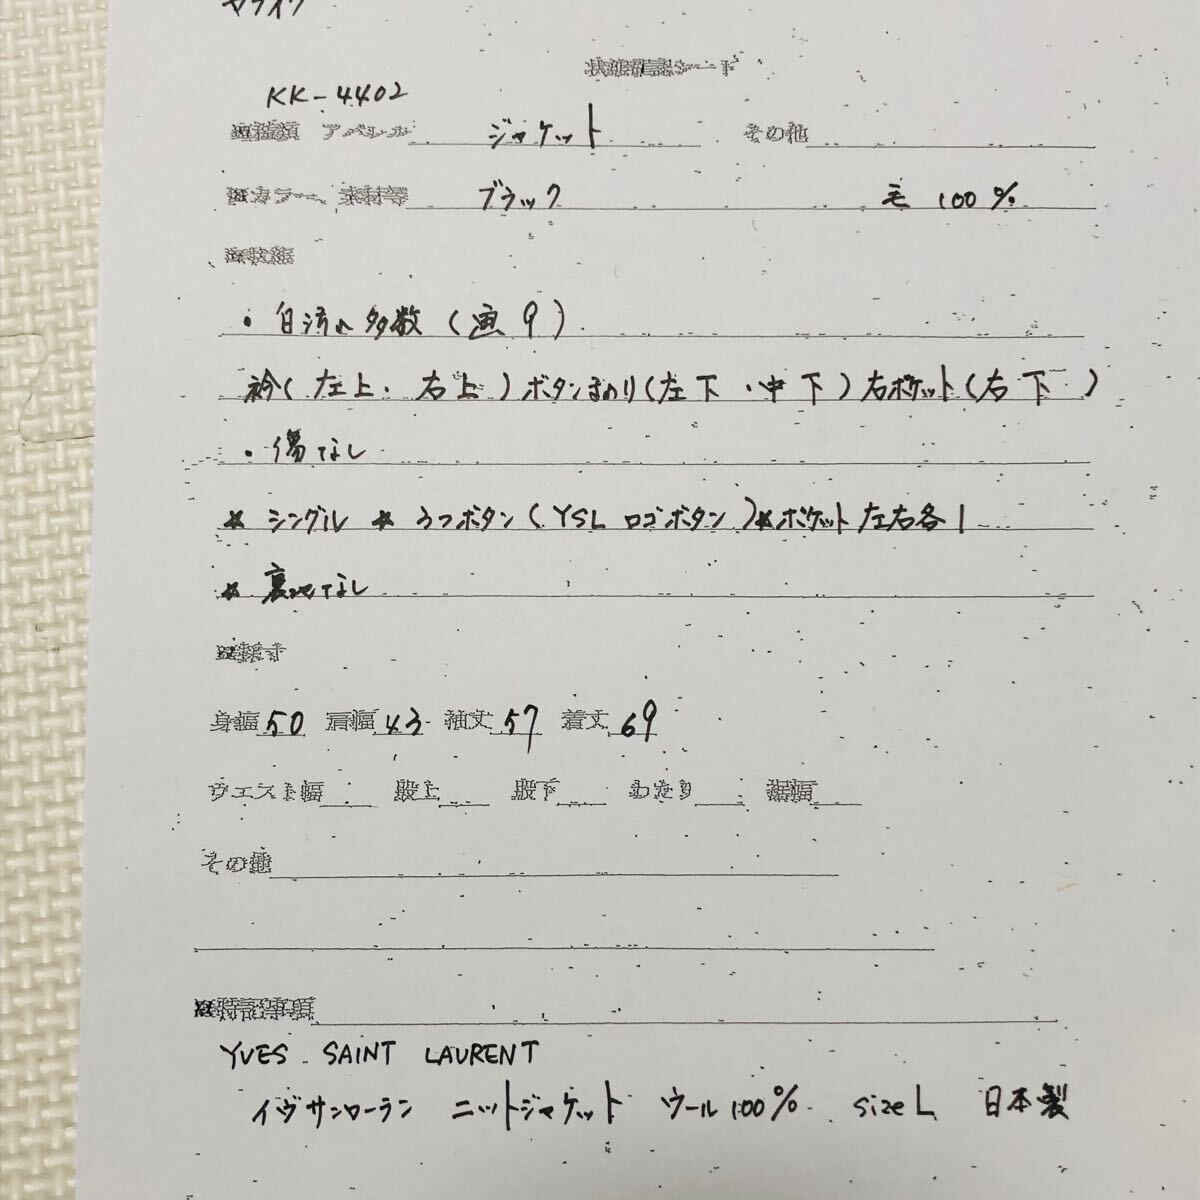 状態確認シート
KK-4402
アパレル ジャケット その他
カラー、素材等 ブラック 毛 100%
・白汚れ多数(画9)
衿(左上・右上)ボタンまわり(左下・中下)右ポケット(右下)
・傷なし
* シングル * 3つボタン(YSLロゴボタン)*ポケット左右各1
* 裏地なし
採寸
身幅 50 肩幅 43 袖丈 57 着丈 69
ウエスト幅 股上 股下 わたり 裾幅
その他
特記事項
YVES SAINT LAURENT
イヴサンローラン ニットジャケット ウール100% size L 日本製